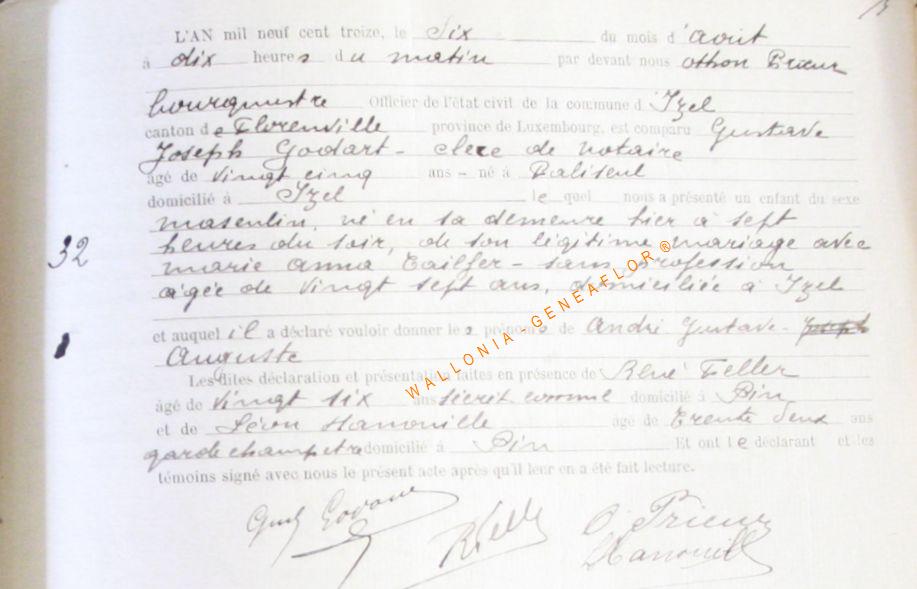 L'AN mil neuf cent treize, le Six du mois d'août
à dix heures du matin par devant nous Othon Prieur
bourgmestre Officier de l'état civil de la commune d'Izel
canton de Florenville province de Luxembourg, est comparu Gustave
Joseph Godart - clerc de notaire
âgé de vingt cinq ans - né à Paliseul
domicilié à Izel lequel nous a présenté un enfant du sexe
masculin, né en sa demeure hier à sept
heures du soir, de son légitime mariage avec
32
marie anna - sans profession
agée de vingt sept ans, domiciliée à Izel
et auquel il a déclaré vouloir donner les prénoms de André Gustave - Joseph
Auguste
Les dites déclaration et présentation faites en présence de René Feller
âgé de vingt six ans domicilié à Pin
et de Léon Hanouille âgé de trente deux ans
garde champetre domicilié à Pin Et ont le déclarant et les
témoins signé avec nous le présent acte après qu'il leur en a été fait lecture.
Gust Godart
R Feller
O. Prieur
Hanouille
WALLONIA - GENEAFLOR ®